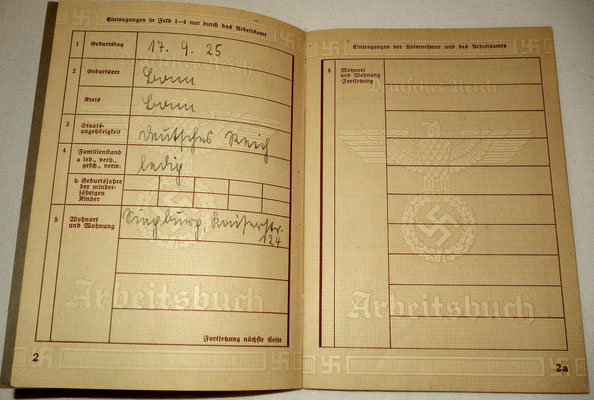 Eintragungen in Feld 1—4 nur durch das Arbeitsamt
1 Geburtstag 17. 9. 25
2 Geburtsort Bonn
Kreis Bonn
3 Staats-
angehörigkeit Deutsches Reich
4 Familienstand
a led., verh.,
gesch., verw. ledig
b Geburtsjahre
der minder-
jährigen
Kinder
5 Wohnort
und Wohnung Siegburg, Kaiserstr.
124
Arbeitsbuch
Fortsetzung nächste Seite
2
Eintragungen der Unternehmer und des Arbeitsamts
5 Wohnort
und Wohnung
Fortsetzung
Deutsches Reich
Arbeitsbuch
2a